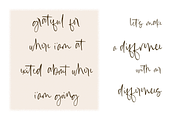 grateful for
where i am at
excited about where
i am going
let's make
a difference
with our
differences